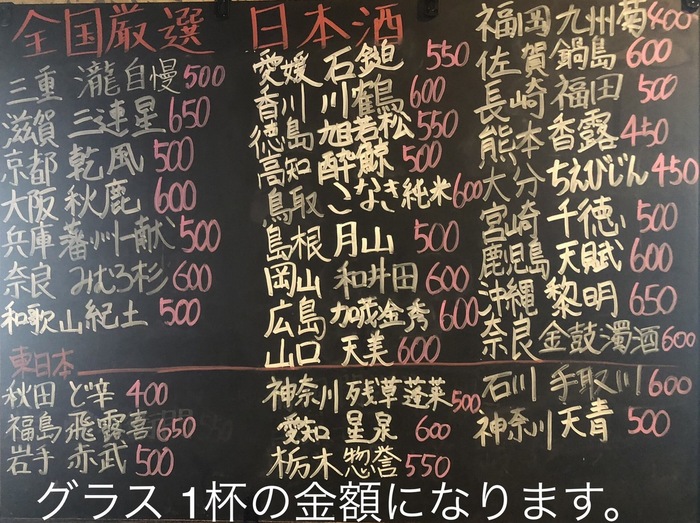 全国厳選 日本酒
三重 瀧自慢 500
滋賀 三連星 650
京都 乾風 500
大阪 秋鹿 600
兵庫 播州一献 500
奈良 みむろ杉 600
和歌山 紀土 500
愛媛 石鎚 550
香川 川鶴 600
徳島 旭若松 550
高知 酔鯨 500
鳥取 こなき純米 600
島根 月山 500
岡山 和井田 600
広島 加茂金秀 600
山口 天美 600
福岡 九州菊 400
佐賀 鍋島 600
長崎 福田 500
熊本 香露 450
大分 ちえびじん 450
宮崎 千徳 500
鹿児島 天賦 600
沖縄 黎明 650
奈良 金鼓濁酒 600
東日本
秋田 ど辛 400
福島 飛露喜 650
岩手 赤武 500
神奈川 残草蓬莱 500
愛知 星泉 600
栃木 惣誉 550
石川 手取川 600
神奈川 天青 500
グラス 1杯の金額になります。